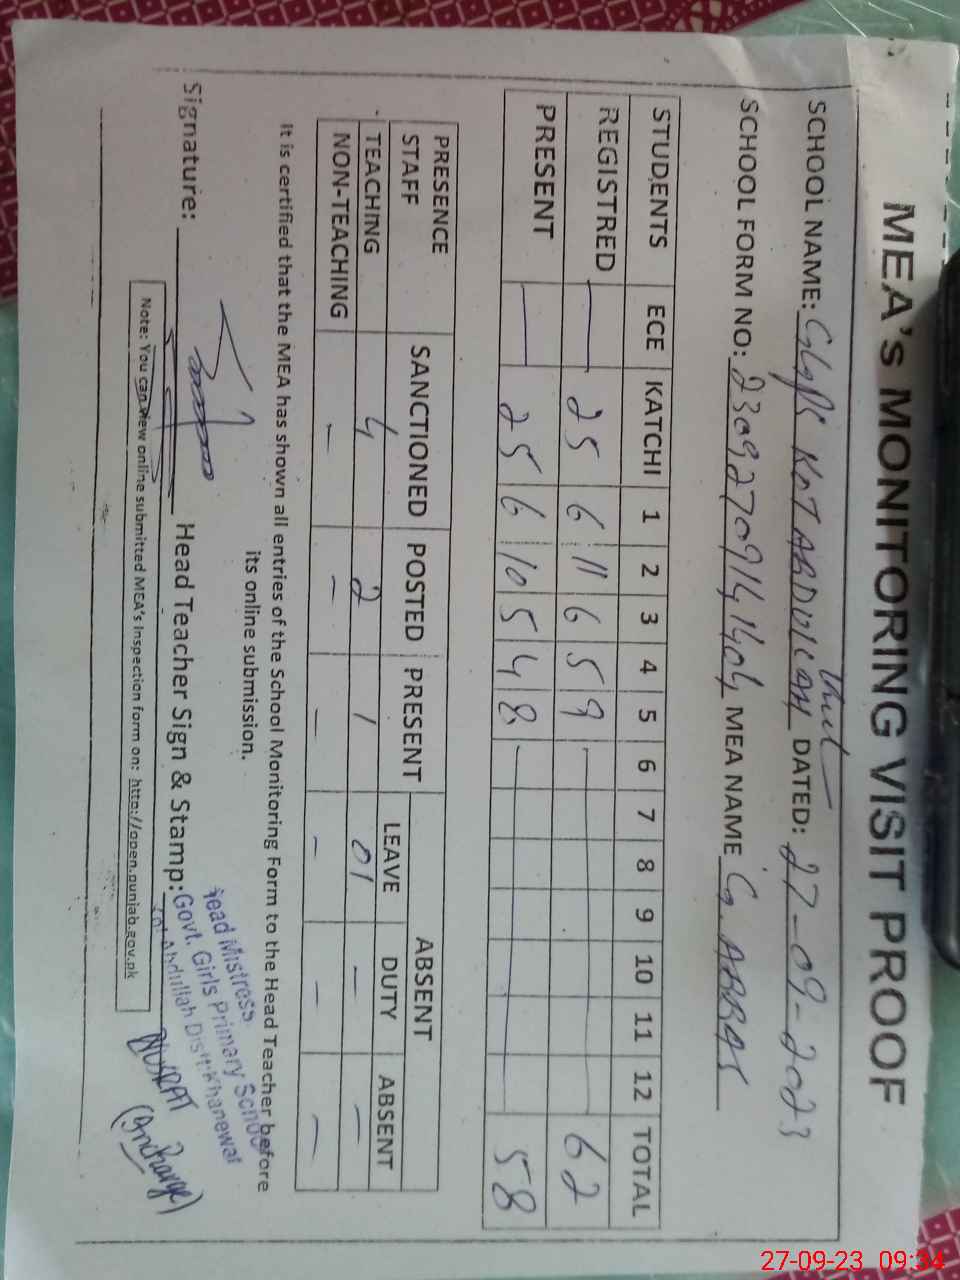 MEA's MONITORING VISIT PROOF
SCHOOL NAME: GGPS KOT ABDULLAH DATED: 27-09-2023
SCHOOL FORM NO: MEA NAME G. ABBAS
STUDENTS ECE KATCHI 1 2 3 4 5 6 7 8 9 10 11 12 TOTAL
REGISTRED — 25 6 11 6 5 9 62
PRESENT — 25 6 10 5 4 8 58
PRESENCE ABSENT
STAFF SANCTIONED POSTED PRESENT LEAVE DUTY ABSENT
TEACHING 4 2 1 01 — —
NON-TEACHING — — — — — —
It is certified that the MEA has shown all entries of the School Monitoring Form to the Head Teacher before
its online submission.
Signature: Head Teacher Sign & Stamp:
Head Mistress
Govt. Girls Primary School
Kot Abdullah Distt: Khanewal
NUSRAT
(Incharge)
Note: You can view online submitted MEA's Inspection form on: http://open.punjab.gov.pk
27-09-23 09:34